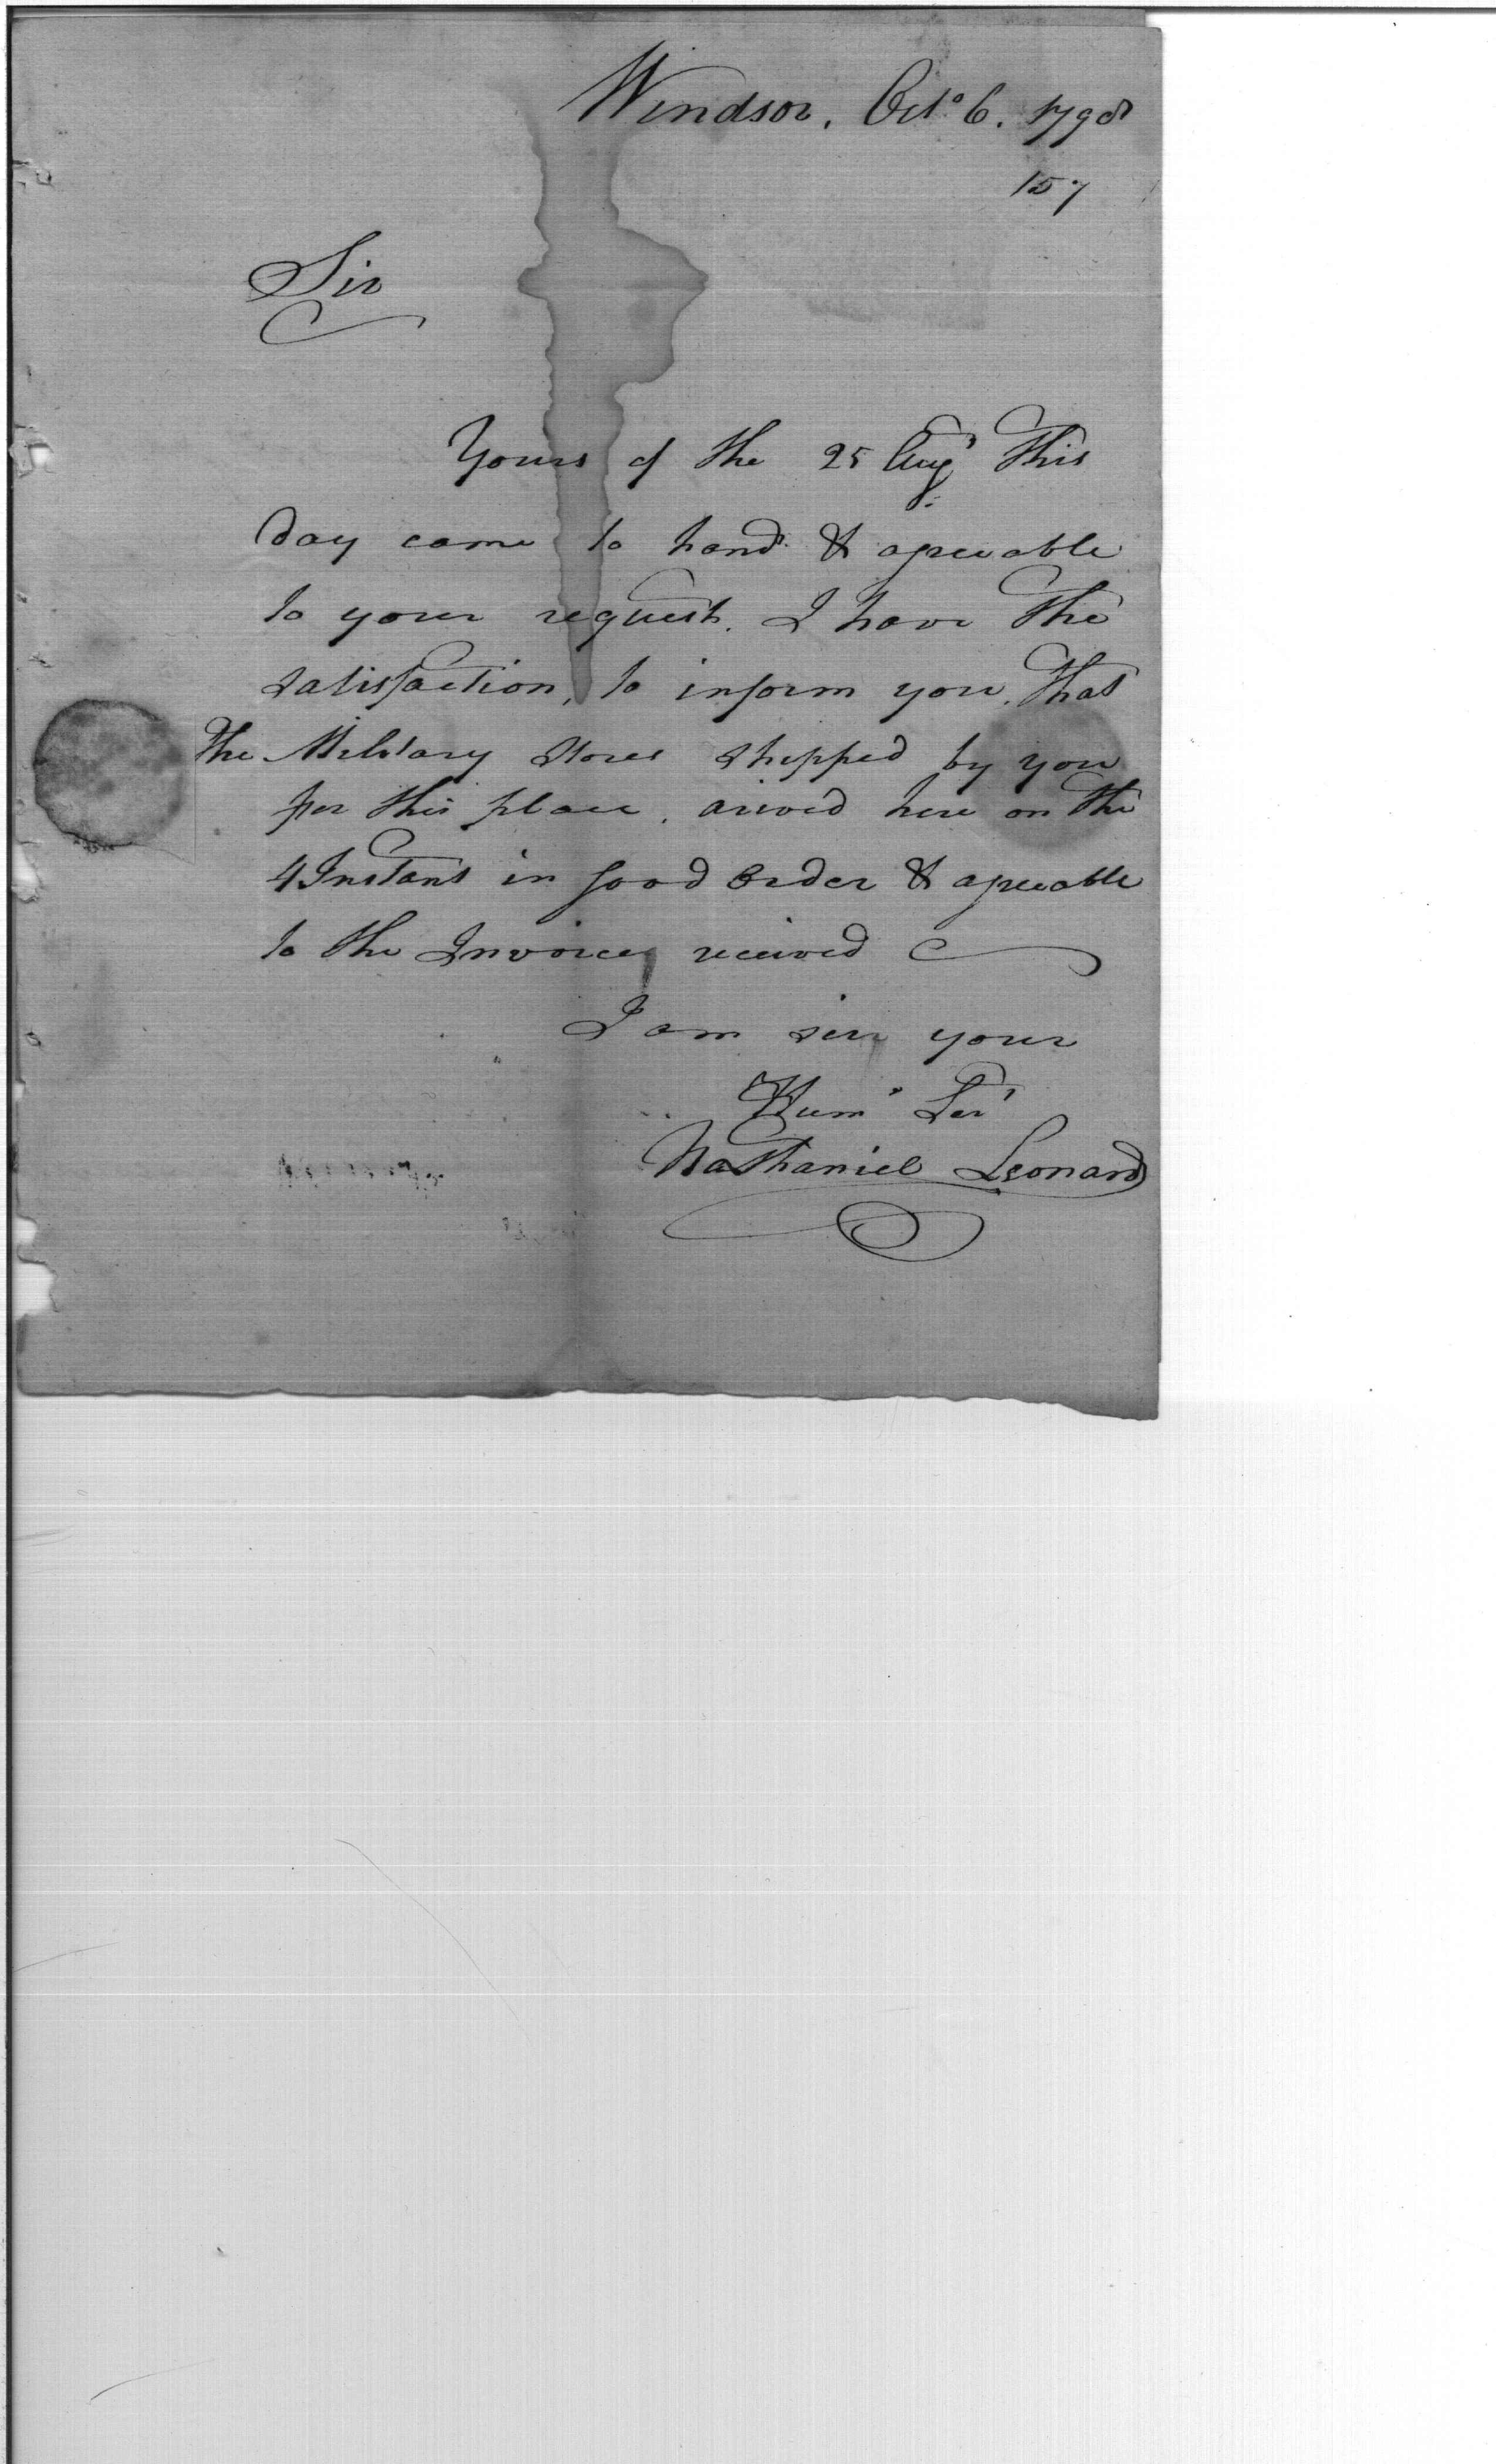 Windsor, Octo 6. 1798
157
Sir
Yours of the 25 Augt This
day came to hand & agreeable
to your request. I have The
satisfaction, to inform you. That
The Military Stores shipped by you
for this place. arived here on The
4 Instant in good order & agreeable
to the Invoice received
I am sir your
Humr Sert
Nathaniel Leonard